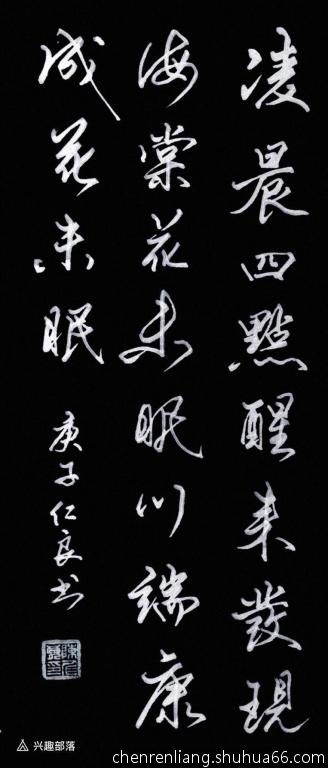 凌晨四點醒来發現
海棠花未眠川端康
成花未眠
庚子仁良书
兴趣部落
chenrenliang.shuhua66.com